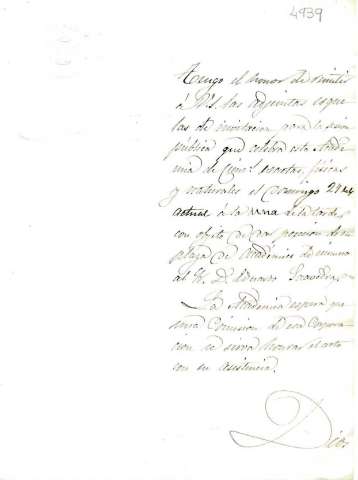 4939
Tengo el honor de remitir
á V.S. las adjuntas esque
las de invitacion para la sesion
pública que celebra esta Acade
mia de Cienc.s exactas, físicas
y naturales el Domingo 27 del
actual á la una de la tarde,
con objeto de dar posesion de
plaza de Académico de número
al Sr. D. Eduardo Saavedra.
La Academia espera que
una Comision de esa Corpora
cion se sirva honrar el acto
con su asistencia.
Dios